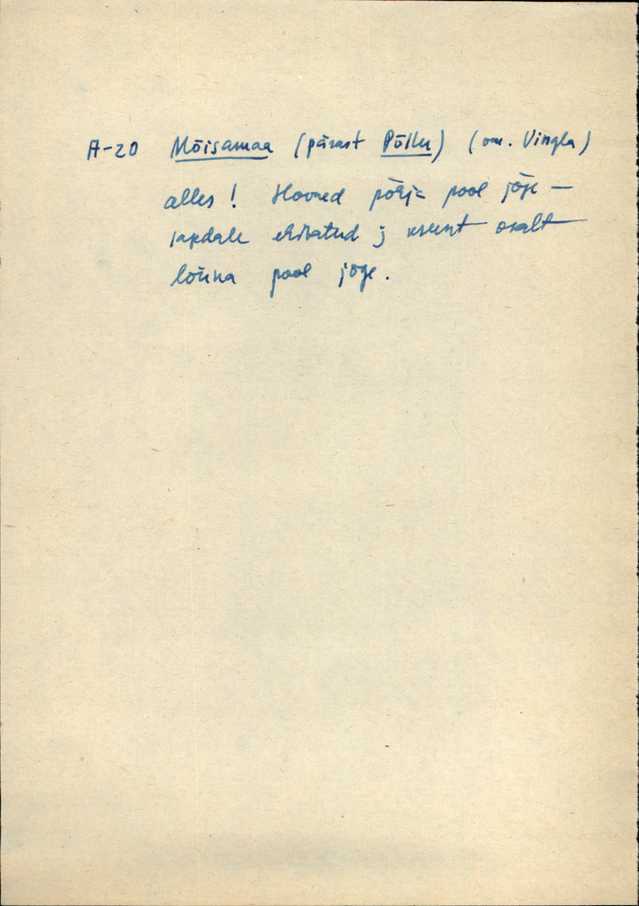 A-20 Mõisamaa (pärast Põllu) (om. Vingla)
alles! Hooned põhja pool jõge –
ehitatud j osalt
lõuna pool jõge.